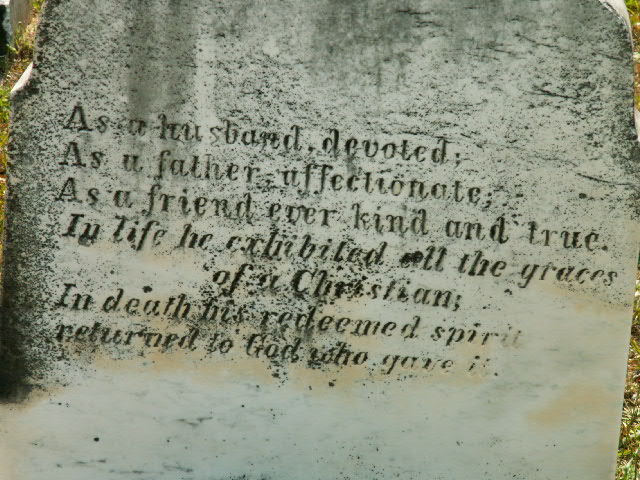 As a husband, devoted;
As a father, affectionate;
As a friend ever kind and true.
In life he exhibited all the graces
of a Christian;
In death his redeemed spirit
returned to God who gave it.